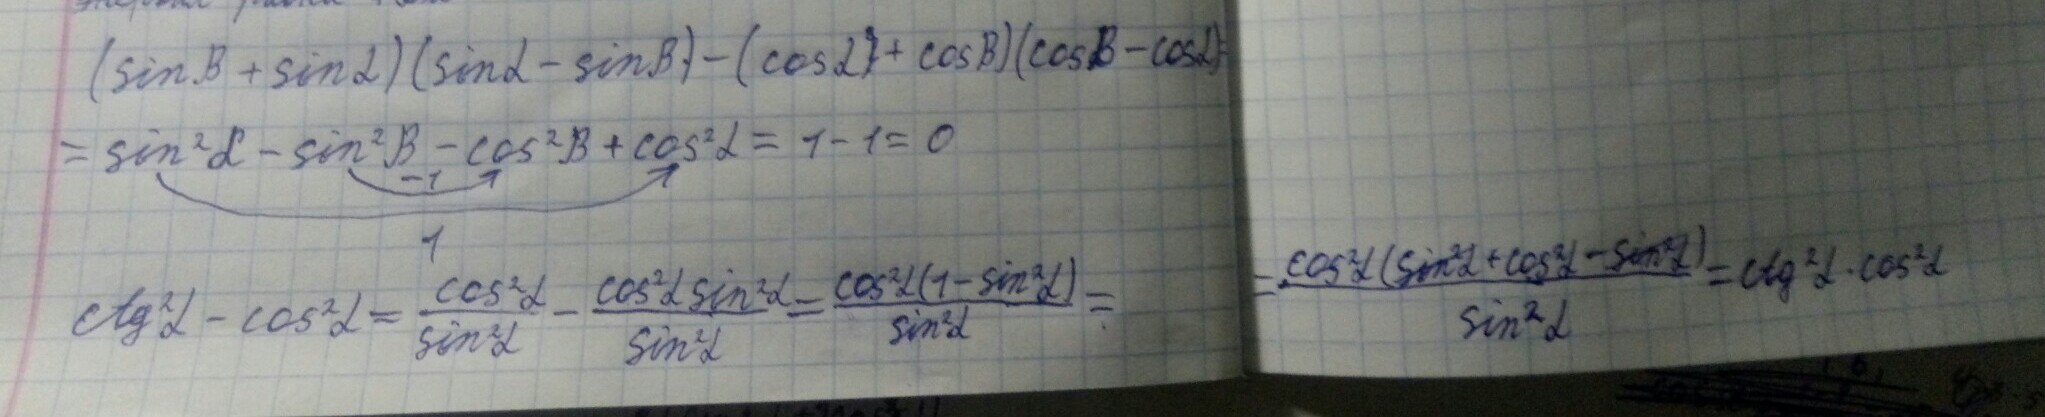 (sinβ + sinα)(sinα - sinβ) - (cosα + cosβ)(cosβ - cosα) =
= sin²α - sin²β - cos²β + cos²α = 1 - 1 = 0
-1
1
ctg²α - cos²α = cos²α/sin²α - cos²α sin²α/sin²α = cos²α(1 - sin²α)/sin²α =
= cos²α(sin²α + cos²α - sin²α)/sin²α = ctg²α · cos²α